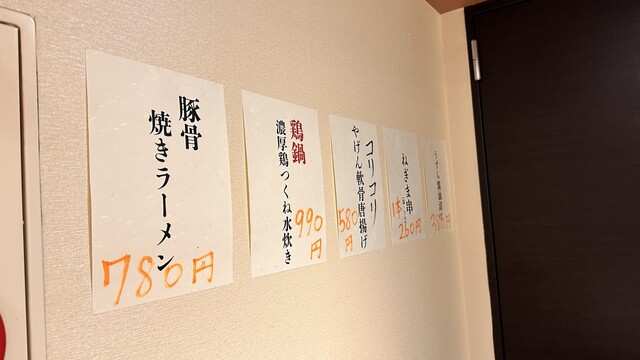 豚骨
焼きラーメン
780円
鶏鍋
濃厚鶏つくね水炊き
990
円
コリコリ
やげん軟骨唐揚げ
580
円
ねぎま串
1本
260円
380円